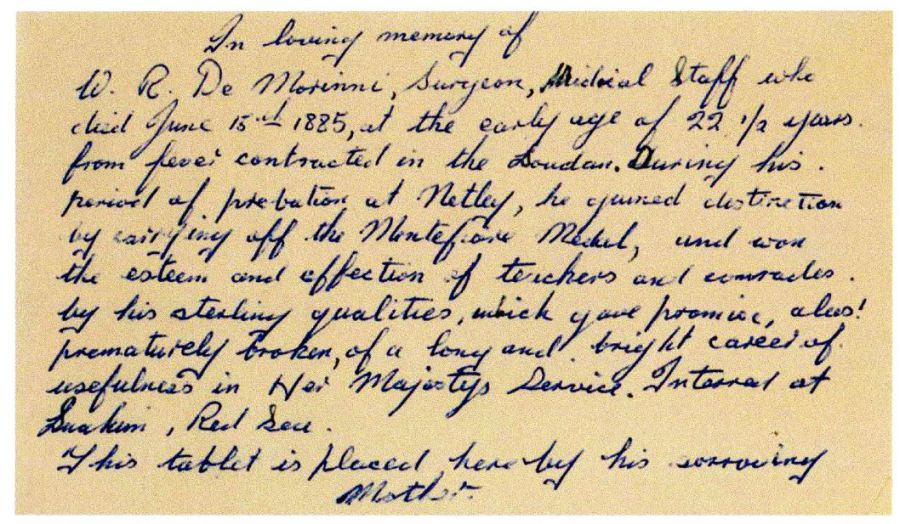 In loving memory of
W. R. De Morinni, Surgeon, Medical Staff who
died June 15th 1885, at the early age of 22 1/2 years.
from fever contracted in the Soudan. During his.
period of probation at Netley, he gained distinction
by carrying off the Montefiore Medal, and won
the esteem and affection of teachers and comrades.
by his sterling qualities, which gave promise, alas!
prematurely broken, of a long and bright career of.
usefulness in Her Majestys Service. Interred at
Suakim, Red Sea.
This tablet is placed here by his sorrowing
Mother.